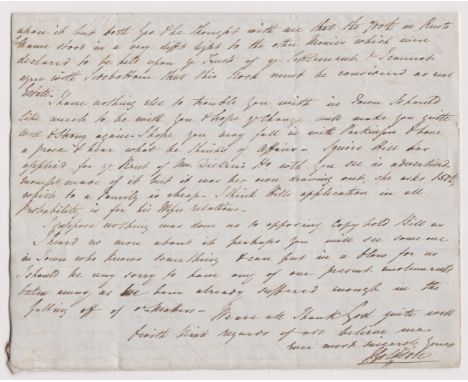 upon it but both Geo & he thought with me that the 700£ in Rusts
name stood in a very difft light to the other Monies which were
declared to be held upon ye Trusts of ye Settlement & I cannot
agree with Sidebottom that this Stock must be considered as real
Estate.
I have nothing else to trouble you with in Town I should
like much to be with you & hope ye change will make you quite
well & strong again. I hope you may fall in with Parkinson & have
a prose & hear what he thinks of Affairs - Squire Hill has
applied for ye Rent of Mr Dickens Ho with you see is advertised
made of it but it was her own drawing out, she asks 150£
which to a family is cheap - I think Hills application in all
probability is for his Wifes relations -
I suppose nothing was done as to opposing Copyhold Bill as
I heard no more about it perhaps you will see some one
in Town who knows something & can put in a blow for us
I should be very sorry to have any of our present emoluments
taken away as we have already suffered enough in the
falling off of or
We are all thank God quite well
& with kind regards of all believe me
ever most sincerely yours